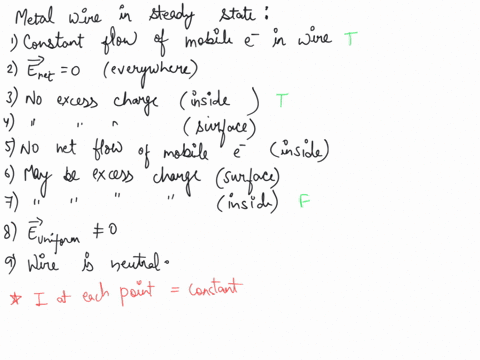 Metal wire in steady state :
1) Constant flow of mobile e⁻ in wire T
2) E⃗net = 0 (everywhere)
3) No excess charge (inside ) T
4) " " " (surface)
5) No net flow of mobile e⁻ (inside)
6) May be excess charge (surface)
7) " " " " (inside) F
8) E⃗uniform ≠ 0
9) Wire is neutral.
* I at each point = constant